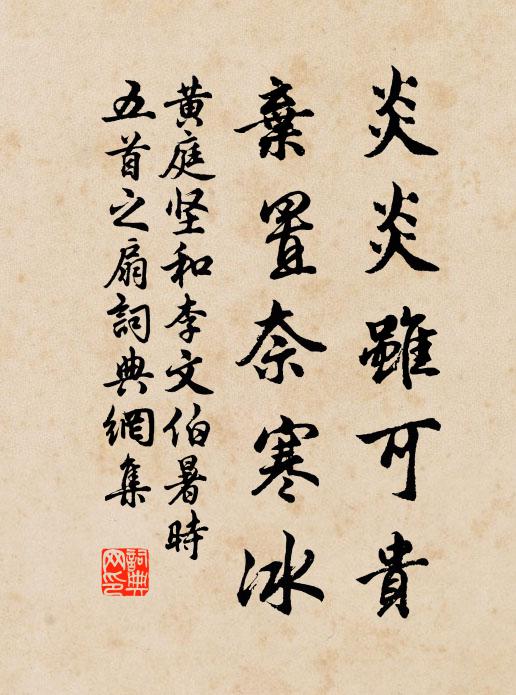 炎炎雖可貴
棄置奈寒冰
黄庭坚和李文伯暑時
五首之扇詞典網集
詞典
网印